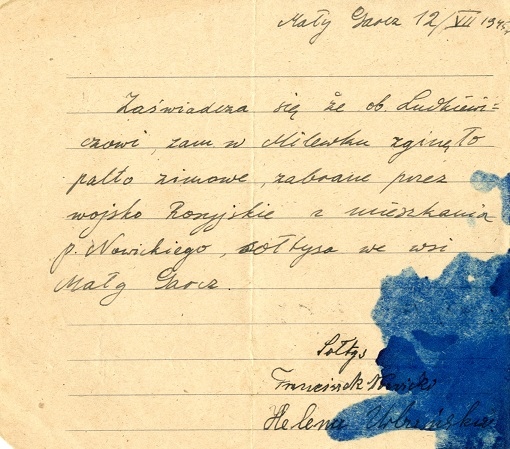 Mały Garcz 12/VII 1945 r.
Zaświadcza się że ob. Ludkiewi=
czowi, zam w Milewku zginęło
palto zimowe, zabrane przez
wojsko Rosyjskie z mieszkania
p. Nowickiego, sołtysa we wsi
Mały Garcz.
Sołtys
Franciszek Nowicki
Helena